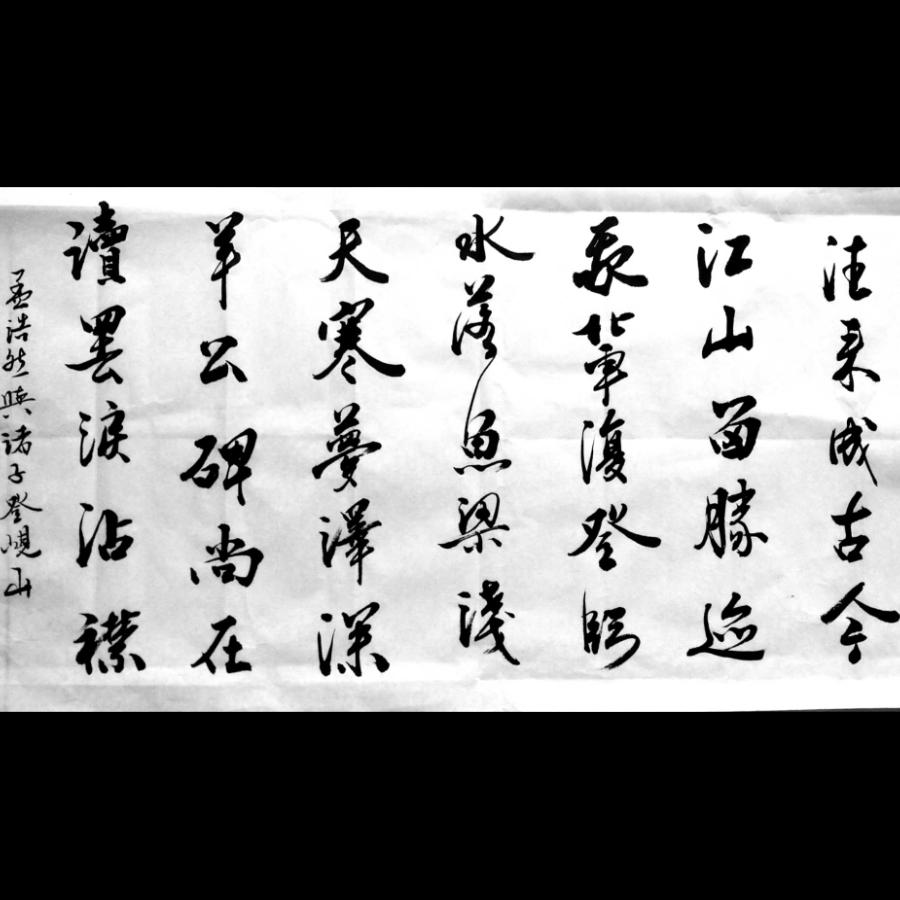 往来成古今
江山留勝迹
我輩復登臨
水落魚梁淺
天寒夢澤深
羊公碑尚在
讀罷淚沾襟
孟浩然與諸子登峴山